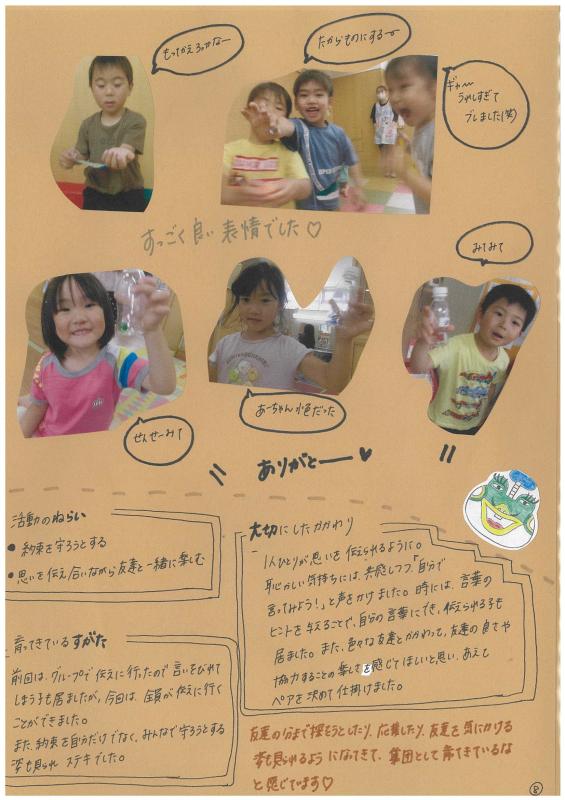 もってかえろっかなー
たからものにするー
ギャー
うれしすぎて
ブレました(笑)
すっごく良い表情でした♡
みてみて
せんせーみて
あーちゃん水色だった
〃 ありがとー♥ 〃
活動のねらい
● 約束を守ろうとする
● 思いを伝え合いながら友達と一緒に楽しむ
育ってきているすがた
前回は、グループで伝えに行ったので言いそびれて
しまう子も居ましたが、今回は、全員が伝えに行く
ことができました。
また、約束を自分だけでなく、みんなで守ろうとする
姿も見られ ステキでした。
大切にしたかかわり
1人ひとりが思いを伝えられるように。
恥かしい気持ちには、共感しつつ「自分で
言ってみよう!」と声をかけました。時には、言葉の
ヒントを与えることで、自分の言葉にでき、伝えられる子も
居ました。また、色々な友達とかかわって、友達の良さや
協力することの楽しさを感じてほしいと思い、あえて
ペアを決めて仕掛けました。
友達の分まで探そうとしたり、応援したり、友達を気にかける
姿も見られるようになってきて、集団として育ってきているな
と感じています♡
8